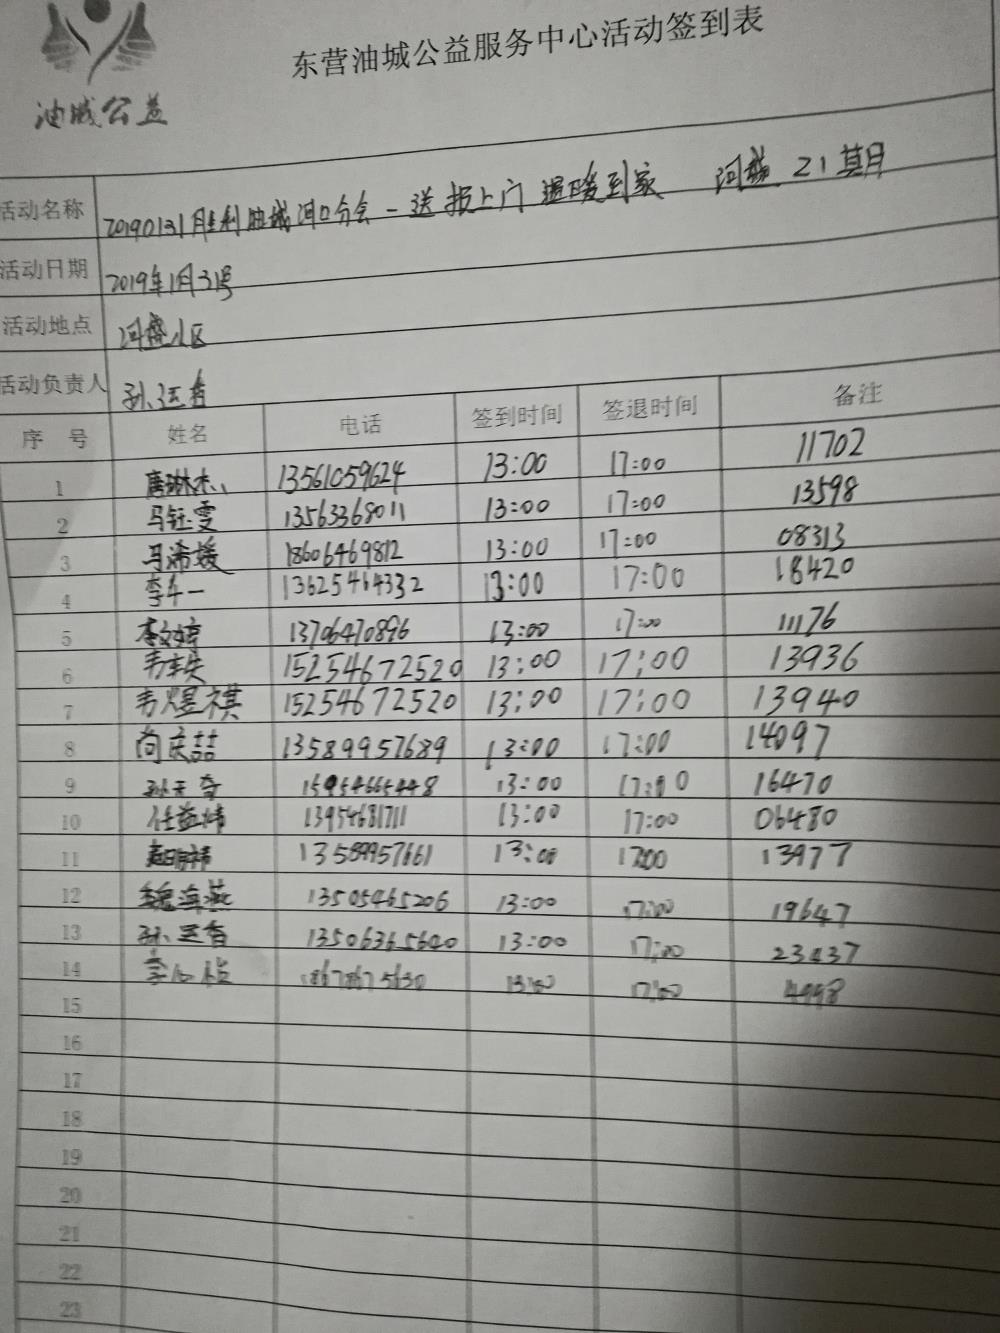 东营油城公益服务中心活动签到表
油城公益
活动名称 20190131胜利油城河口分会-送报上门 温暖到家 河盛 21期
活动日期 2019年1月31号
活动地点 河盛小区
活动负责人 孙运香
序号 姓名 电话 签到时间 签退时间 备注
1 唐琳杰 13561059624 13:00 17:00 11702
2 马钰雯 13563368011 13:00 17:00 13598
3 马浠媛 18606469812 13:00 17:00 08313
4 李午一 13625464332 13:00 17:00 18420
5 13706470896 13:00 17:00 11176
6 15254672520 13:00 17:00 13936
7 韦煜祺 15254672520 13:00 17:00 13940
8 尚庆喆 13589957689 13:00 17:00 14097
9 13:00 17:00 16470
10 任益炜 13954681711 13:00 17:00 06480
11 13589957661 13:00 17:00 13977
12 魏海燕 13505465206 13:00 17:00 19647
13 孙运香 13506365640 13:00 17:00 23437
14 18678675630 13:00 17:00 4998
15
16
17
18
19
20
21
22
23